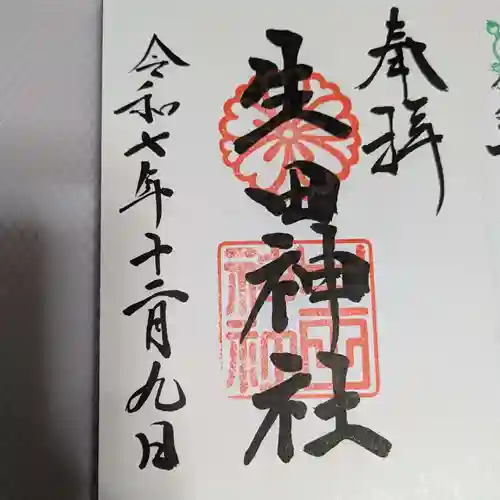 奉拝
生田神社
令和七年十二月九日